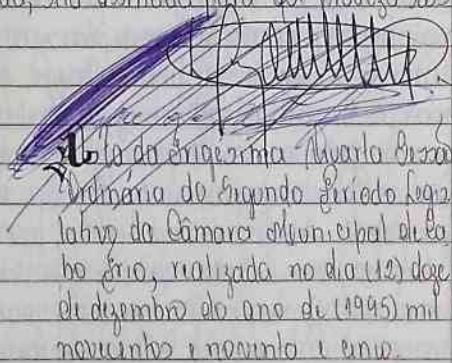 Ata da Trigésima Quarta Sessão
Ordinária do Segundo Período Legis
lativo da Câmara Municipal de Ca
bo Frio, realizada no dia (12) doze
de dezembro do ano de (1995) mil
novecentos e noventa e cinco